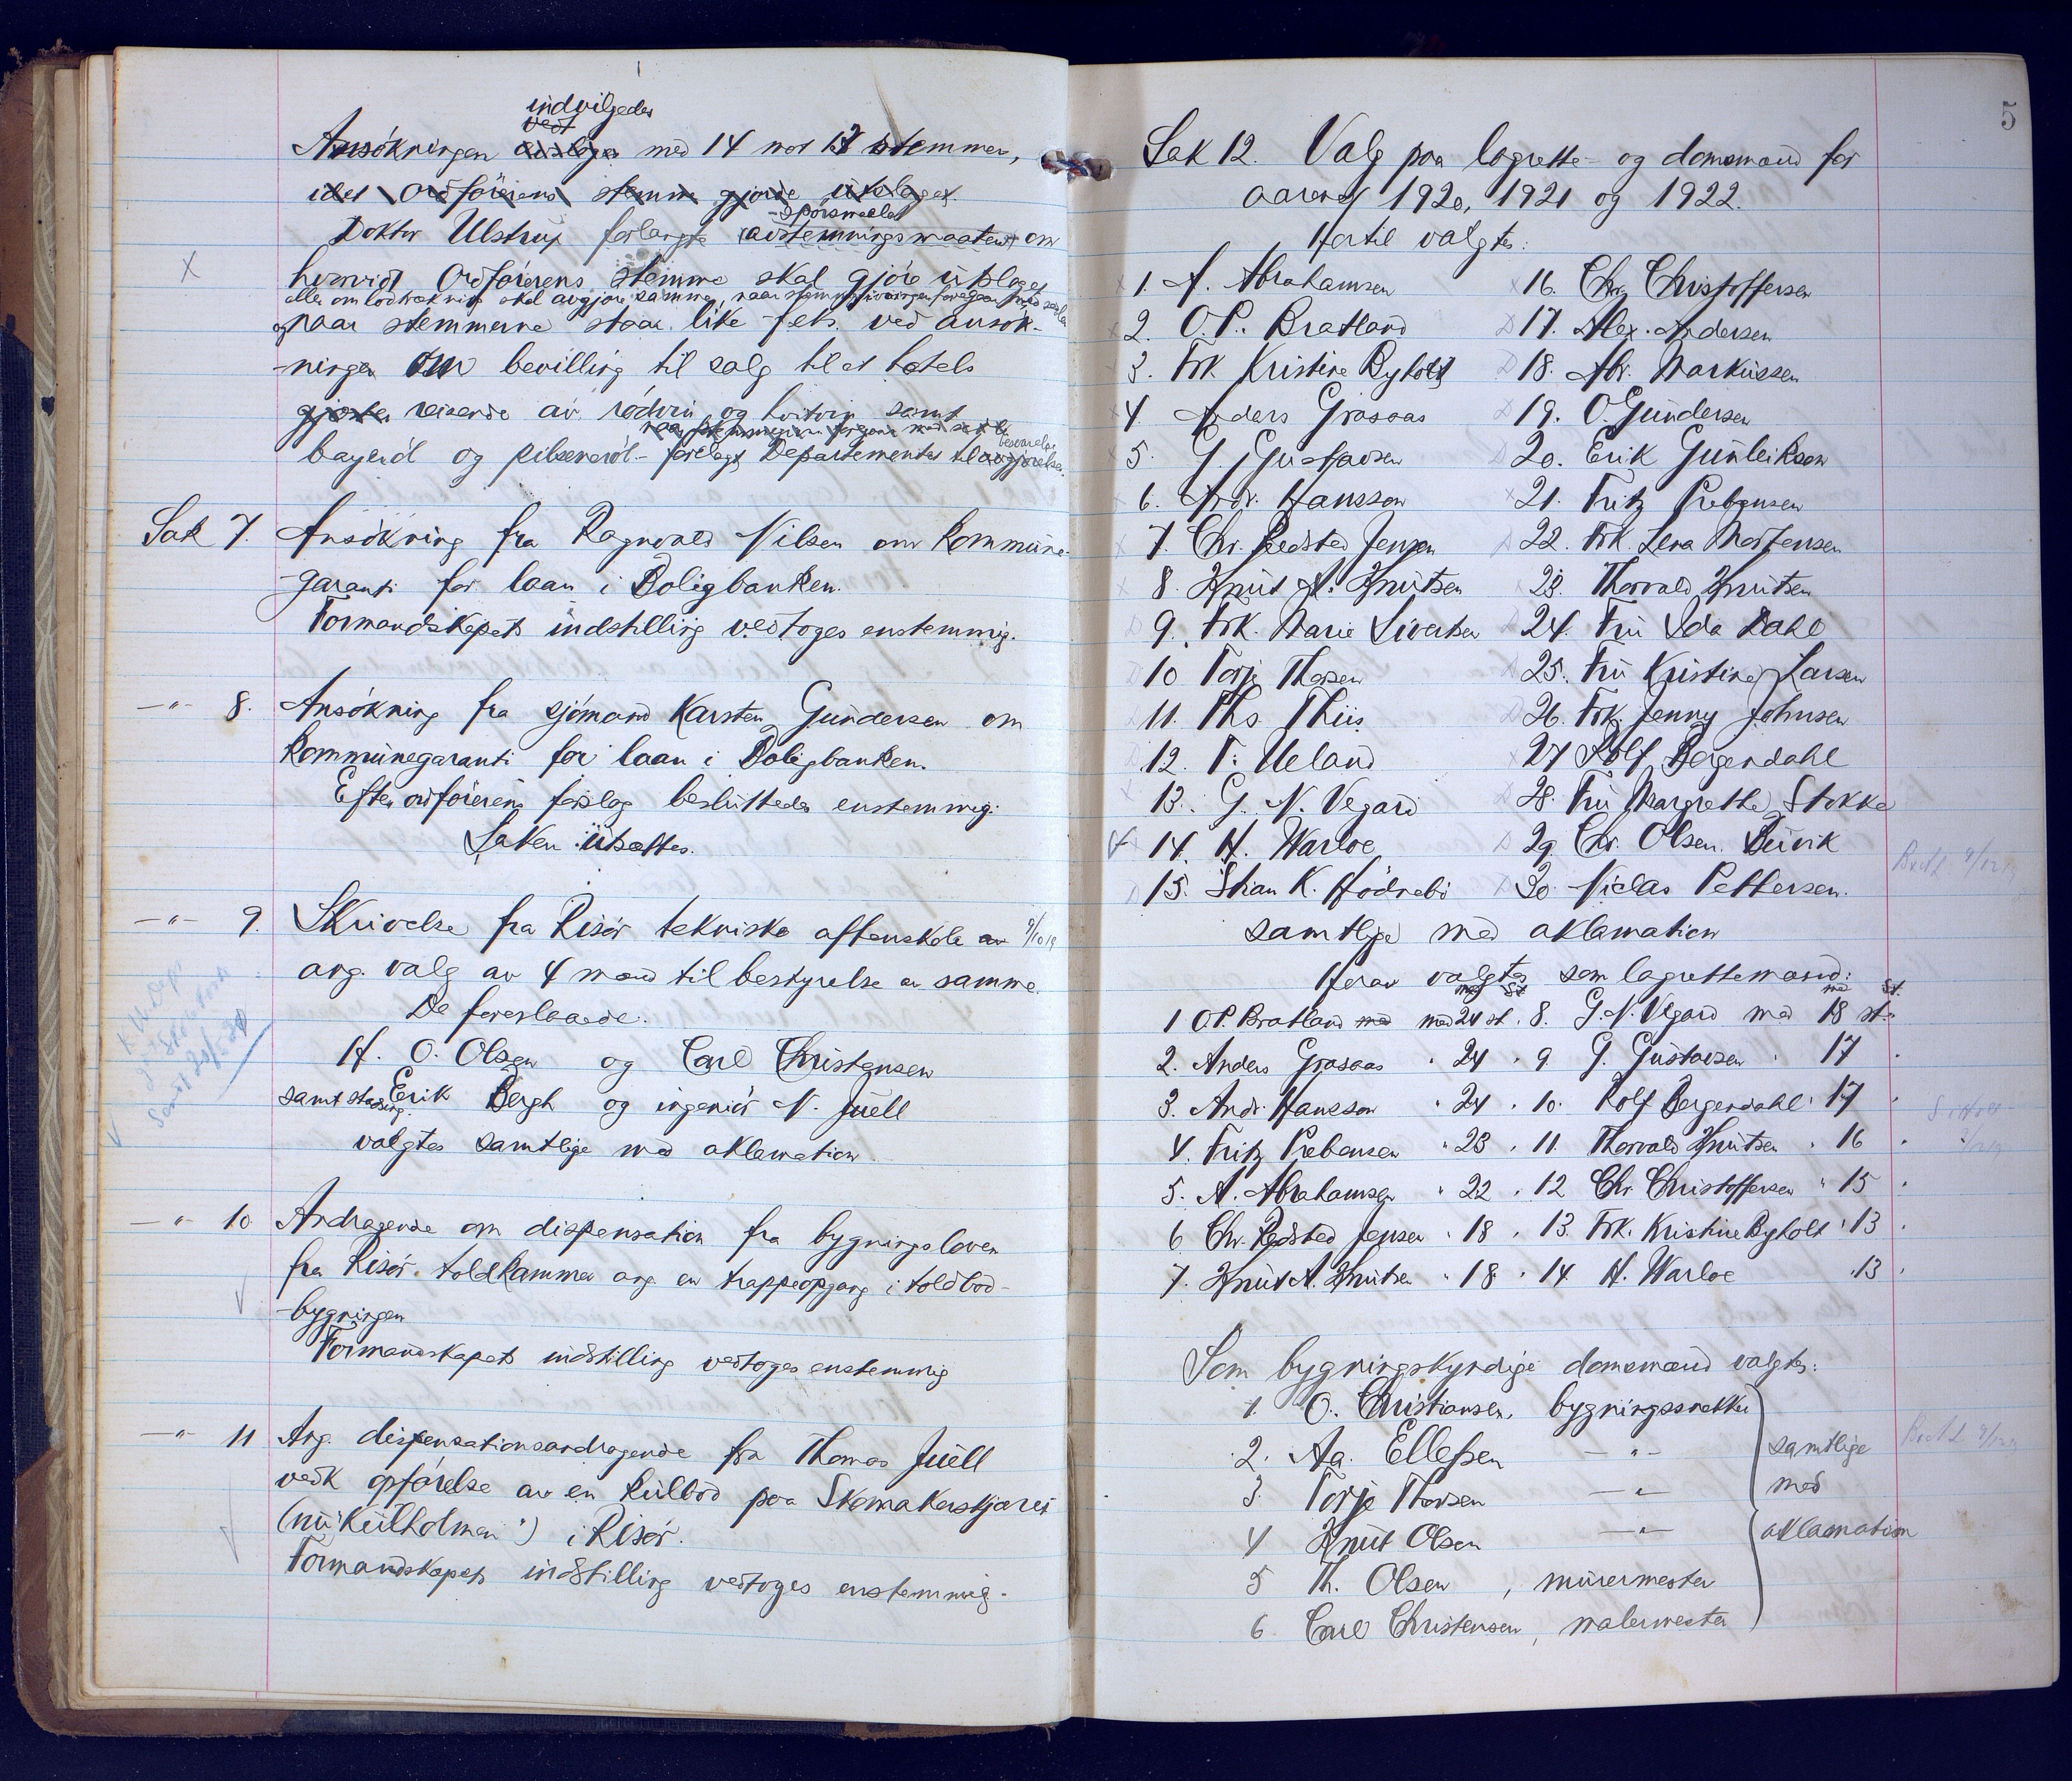 indvilgedes
vedt
Ansökningen avsloges med 14 mot 12 stemmer,
idet Ordförerens stemme gjorde utslaget.
-spörsmaalet
Doktor Ulstrup forlangte avstemningsmaaten om
hvorvidt Ordförerens stemme skal gjöre utslaget
eller om lodtrækning skal avgjöre samme, naar stemmegivningen foregaar med sedler
og naar stemmerne staar like f.eks. ved ansök-
-ningen om bevilling til salg til et hotels
gjester reisende av rödvin og hvitvin samt
naar stemmegivn. foregaar med sedler
besvarelse
bayeröl og pilsenerøl - forelagt Departementet til avgjörelse.
Sak 7. Ansökning fra Ragnvald Nilsen om kommune-
-garanti for laan i Boligbanken.
Formandskapets indstilling vedtoges enstemmig.
—"— 8. Ansökning fra sjömand Karsten Gundersen om
kommunegaranti for laan i Boligbanken.
Efter ordförerens forslag besluttedes enstemmig:
Saken utsættes.
—"— 9. Skrivelse fra Risör tekniske aftenskole av 9/10 19
ang. valg av 4 mænd til bestyrelse av samme.
De foreslaaede:
H. O. Olsen og Carl Christensen
samt stadsing. Erik Bergh og ingeniör N. Juell
valgtes samtlige med aklamation.
—"— 10. Andragende om dispensation fra bygningsloven
fra Risör toldkammer ang. en trappeopgang i toldbod-
-bygningen
Formandskapets indstilling vedtoges enstemmig
—"— 11 Ang. dispensationsandragende fra Thomas Juell
vedk opförelse av en kulbod paa Skomakerskjæret
(nu "Kulholmen") i Risör.
Formandskapets indstilling vedtoges enstemmig.
5
Sak 12. Valg paa lagrette- og domsmænd for
aarene 1920, 1921 og 1922.
Hertil valgtes:
1. A. Abrahamsen 16. Chr. Christoffersen
2. O.P. Bratland 17. Alex. Andersen
3. Frk. Kristine Byholt 18. Abr. Markussen
4. Anders Grosaas 19. O. Gundersen
5. G. Gustavsen 20. Erik Gunleikson
6. Andr. Hansson 21. Fritz Prebensen
7. Chr. Redsted Jensen 22. Frk. Lena Mortensen
8. Knut A. Knutsen 23. Thorvald Knutsen
9. Frk. Marie Sivertsen 24. Fru Ida Dahl
10 Torje Thorsen 25. Fru Kristine Larsen
11. Ths. Thiis 26. Frk. Jenny Johnsen
12. T. Ueland 27 Rolf Bergendahl
13. G. N. Vegard 28. Fru Margrethe Stokke
14. H. Warloe 29. Chr. Olsen Buvik
15. Stian K. Hödnebö 30. Niclas Pettersen.
samtlige med aklamation
Herav valgtes som lagrettemænd:
1 O.P. Bratland med med 24 st. 8. G. N. Vegard med 18 st.
2. Anders Grosaas " 24 " 9. G. Gustavsen " 17 "
3. Andr. Hansson " 24 " 10. Rolf Bergendahl " 17 "
4. Fritz Prebensen " 23 " 11. Thorvald Knutsen " 16 "
5. A. Abrahamsen " 22 " 12 Chr. Christoffersen " 15 "
6 Chr. Redsted Jensen " 18 " 13. Frk. Kristine Byholt " 13 "
7. Knut A. Knutsen " 18 " 14. H. Warloe " 13 "
Som bygningskyndige domsmænd valgtes:
1. O. Christiansen, bygningssnekker
2. Aa. Ellefsen —"— samtlige
3. Torje Thorsen —"— med
4 Knut Olsen —"— aklamation
5 Th. Olsen, murermester
6 Carl Christensen, malermester